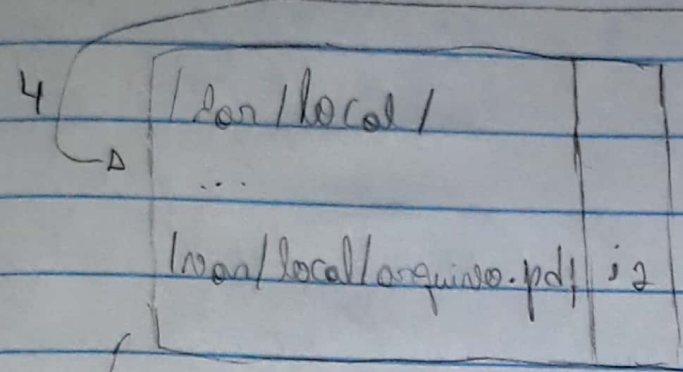 4
/var/local/
...
/var/local/arquivo.pdf i2